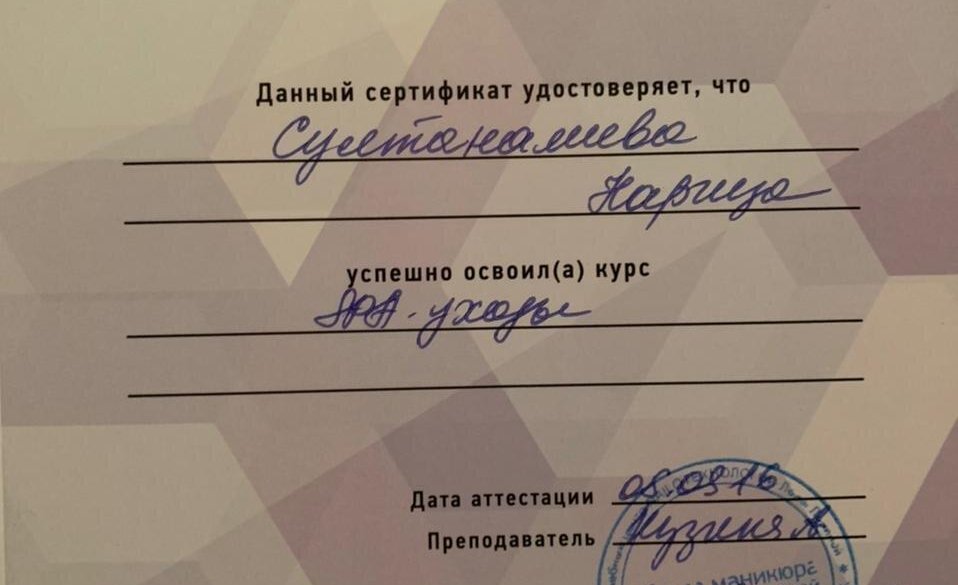 Данный сертификат удостоверяет, что
Султаналиева
Наргиза
успешно освоил(а) курс
SPA-уходы
Дата аттестации 05.09.16
Преподаватель
маникюра